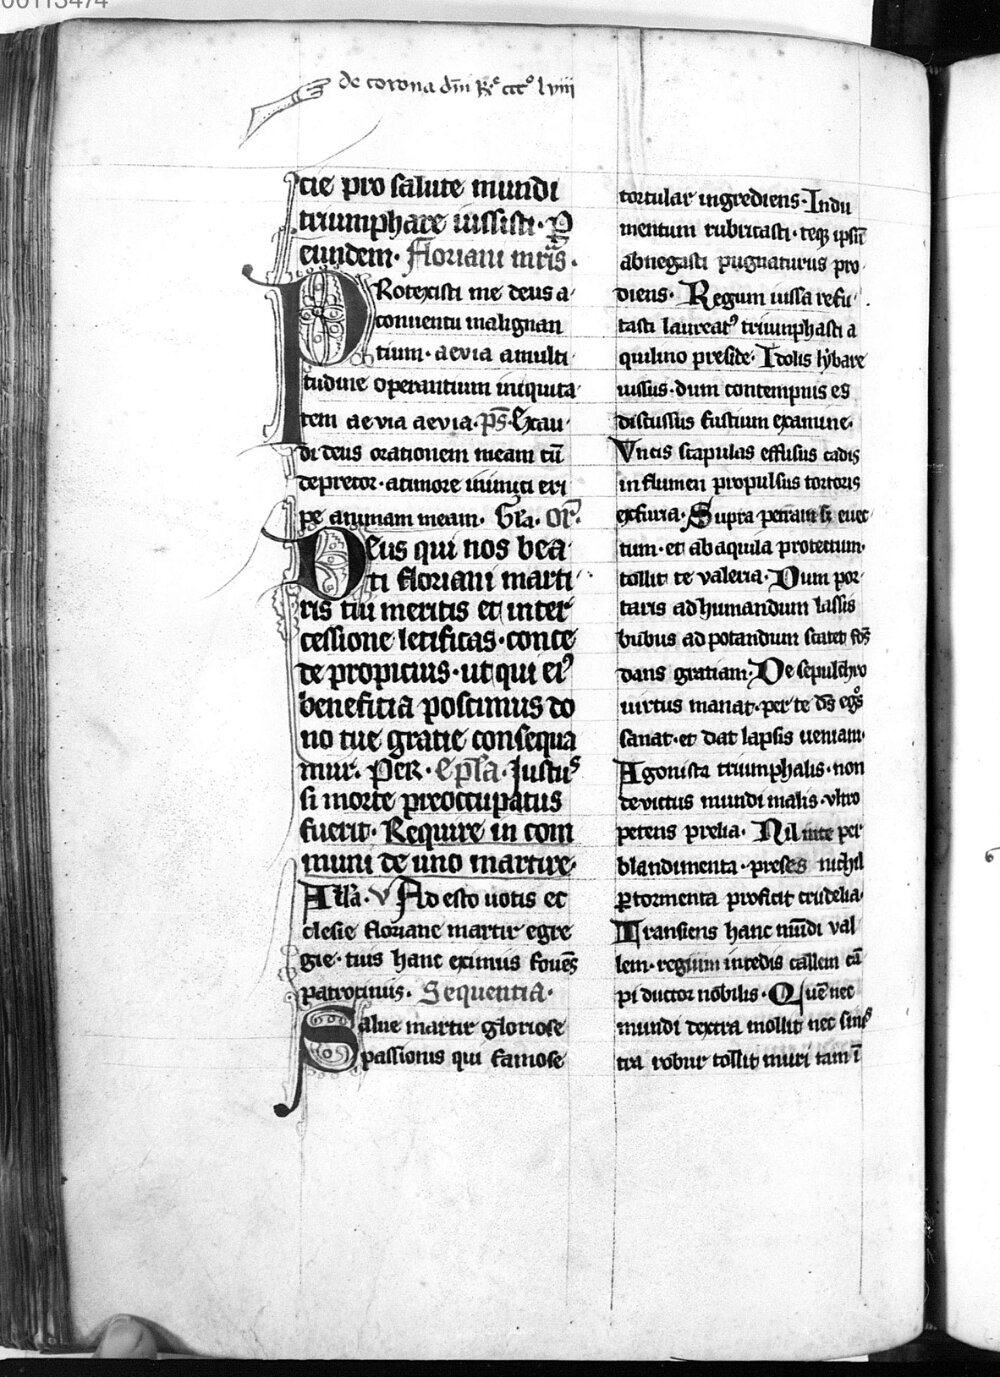 00113474
de corona dn̄i Rͤ cccͦ lviii
cie pro salute mundi
triumphare iussisti· P
eundem· Floriani mr̄is·
PRotexisti me deus a
conuentu malignan
tium· aevia a multi
tudine operantium iniquita
tem aevia aevia· ps̄· Exau
di deus orationem meam cū
deprecor· a timore inimici eri
pe animam meam· Gl̄a· Or̄·
Deus qui nos bea
ti floriani marti
ris tui meritis et inter
cessione letificas· conce
de propicius· ut qui ei⁹
beneficia poscimus do
no tue gratie consequa
mur· Per· Epl̄a· Iustus
si morte preoccupatus
fuerit· Require in com
muni de uno martire·
All̄a· V Ad esto uotis ec
clesie floriane martir egre
gie· tuis hanc eximus fouēs
patrocinus· Sequentia·
Salue martir gloriose
passionis qui famose
torcular ingrediens· Indu
mentum rubricasti· teqꝫ ipsū
abnegasti pugnaturus pro
diens· Regum iussa refu
tasti laureat⁹ triumphasti a
quilino preside· Idolis lybare
iussus· dum contempnis es
discussus fustium examine·
Vncis scapulas effisus cadis
in flumen propulsus tortoris
ex furia· Supra petram si euec
tum· et ab aquila protectum·
tollit te valeria· Dum por
taris ad humandum lassis
bubus ad potandum scatet fōs
dans gratiam· De sepulchro
uirtus manat· per te d̄s egͦs
sanat· et dat lapsis ueniam·
Agonista triumphalis· non
deuictus mundi malis· vltro
petens prelia· Nil in te per
blandimenta· preses nichil
ꝑ tormenta proficit crudelia·
Transiens hanc mūdi val
lem· regium incedis callem cā
pi ductor nobilis· Quē nec
mundi dextra mollit nec sinist
tra robur tollit muri tam ī